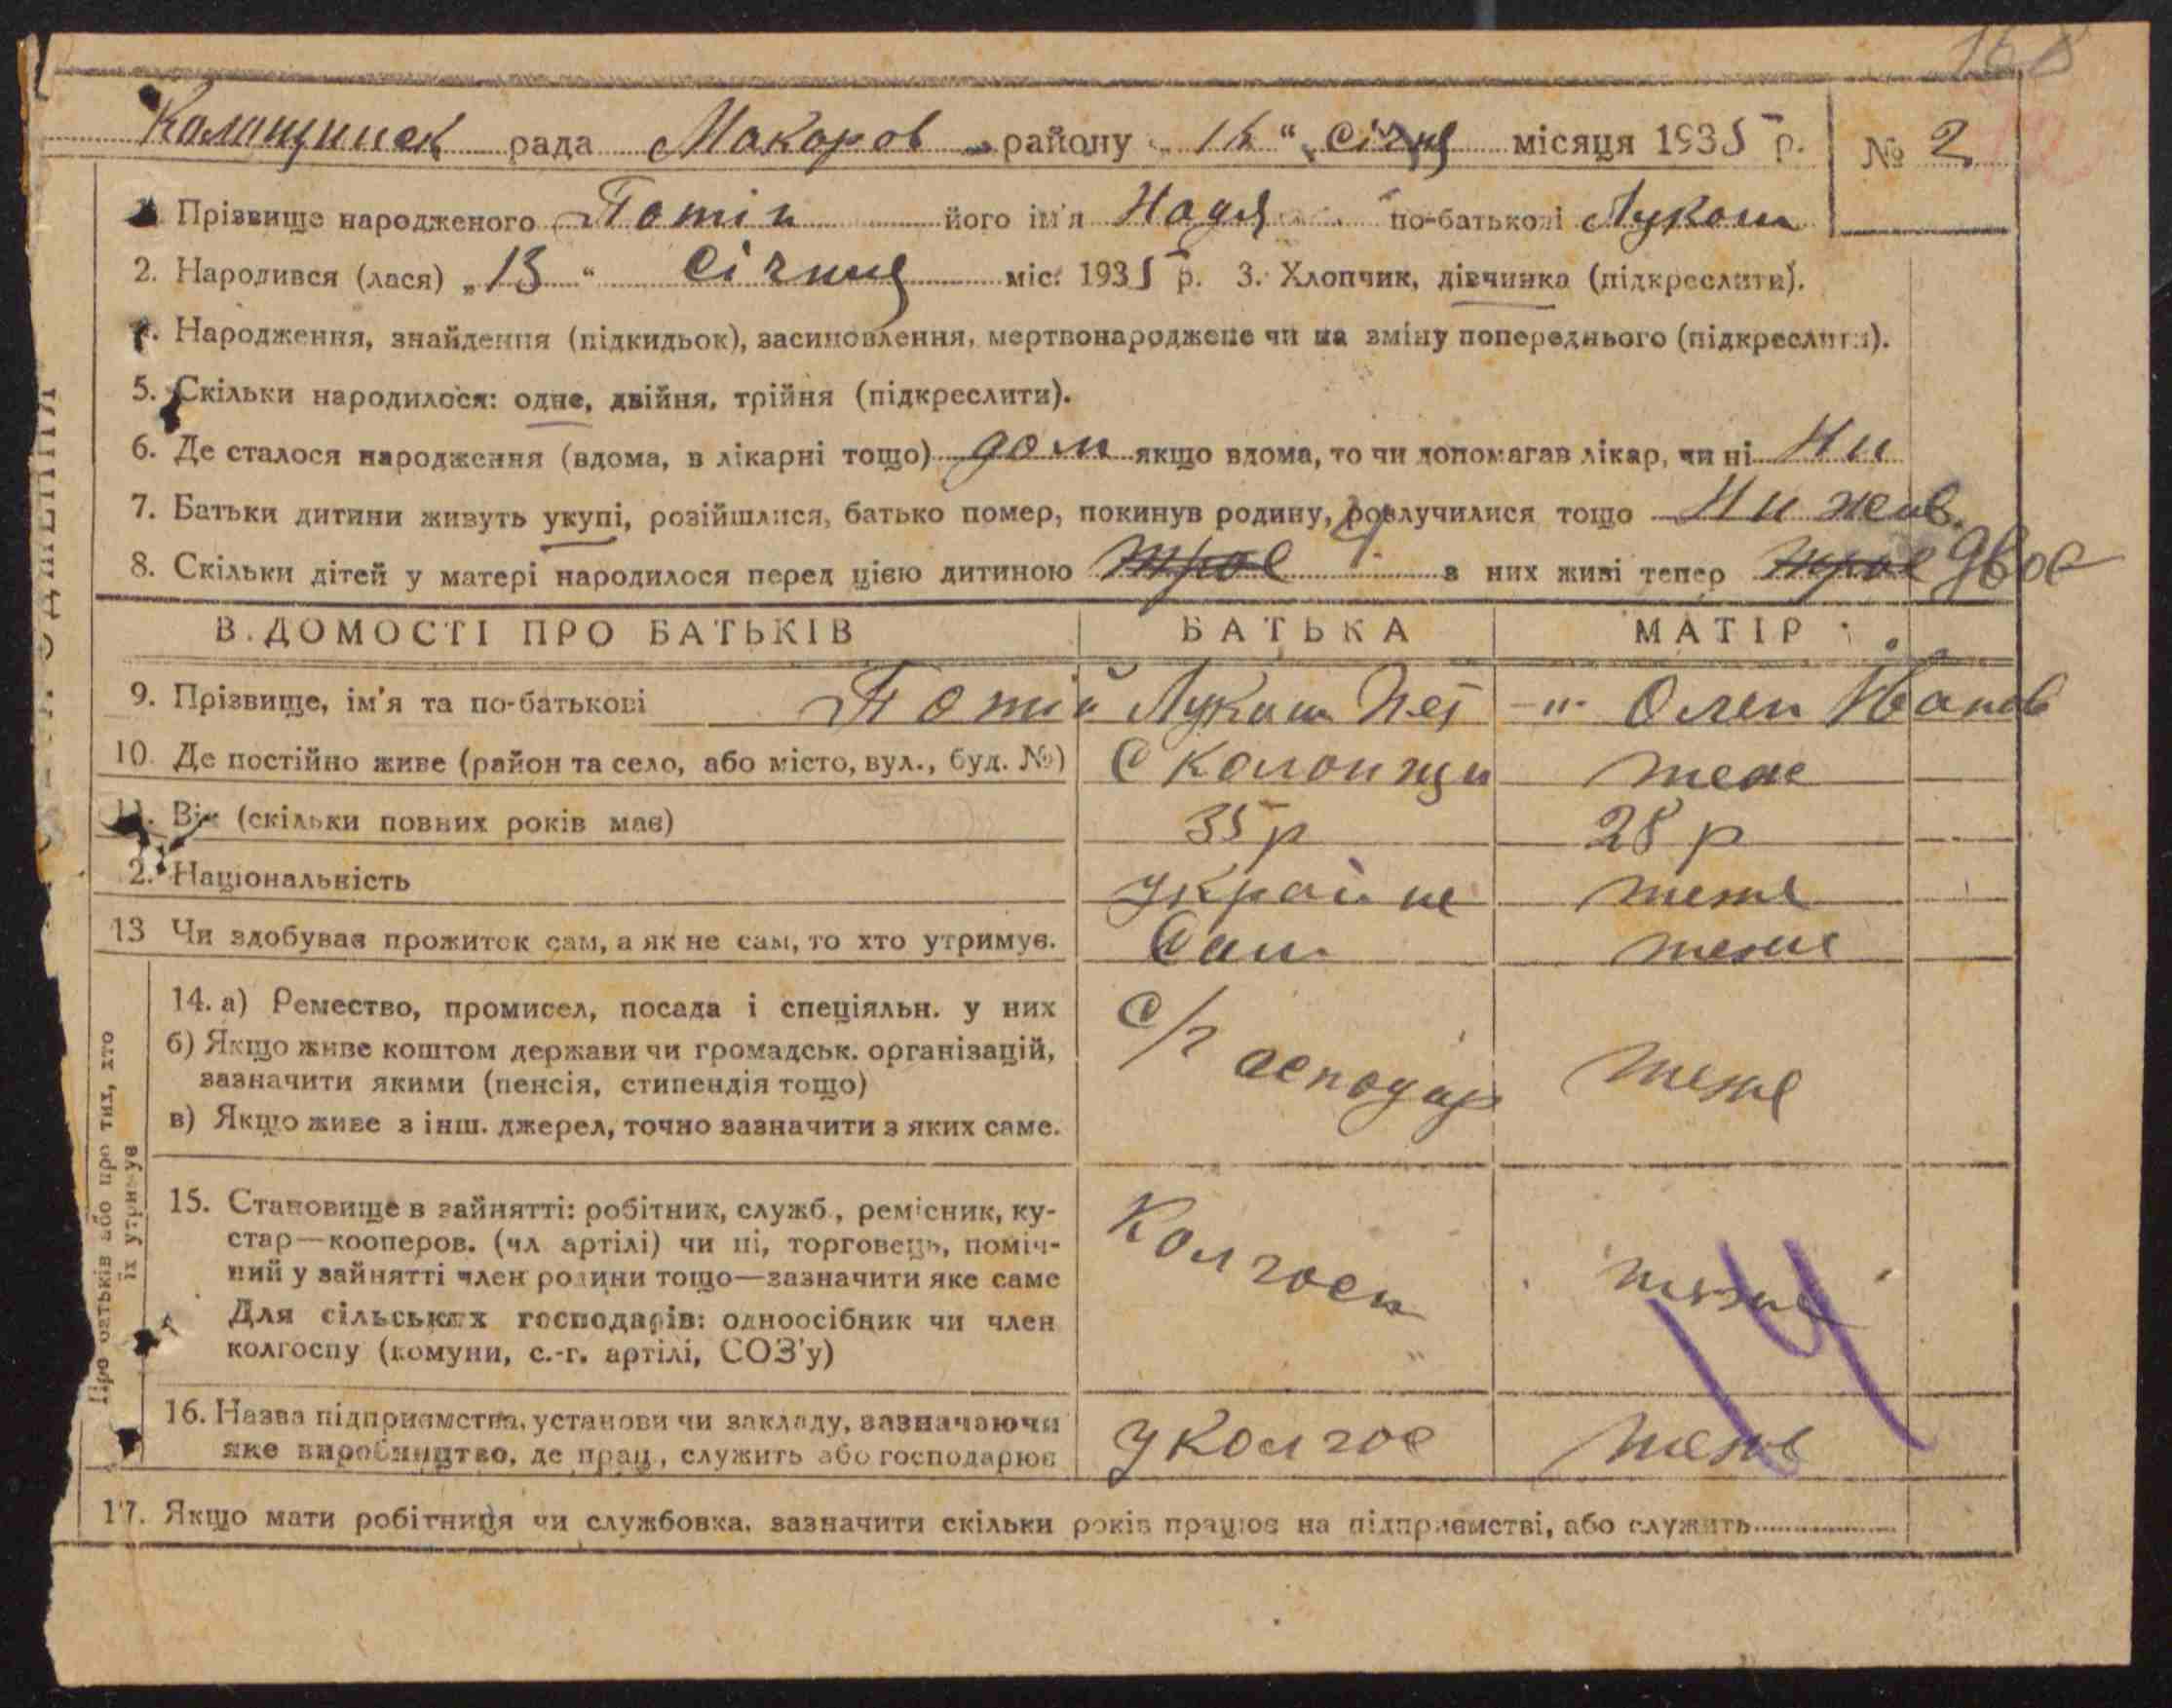 168
Колонщинск рада Макаров району "15" Січня місяця 1935 р. № 2
1. Прізвище народженого Потій його ім'я Надя по-батькові Лукаш
2. Народився (лася) „13" Січня міс. 1935 р. 3. Хлопчик, дівчинка (підкреслити).
4. Народження, знайдення (підкидьок), засиновлення, мертвонароджене чи на зміну попереднього (підкреслити).
5. Скільки народилося: одне, двійня, трійня (підкреслити).
6. Де сталося народження (вдома, в лікарні тощо) дом якщо вдома, то чи допомагав лікар, чи ні Ни
7. Батьки дитини живуть укупі, розійшлися, батько помер, покинув родину, розлучилися тощо Ни жив.
8. Скільки дітей у матері народилося перед цією дитиною трое 4. з них живі тепер трое двое
В ДОМОСТІ ПРО БАТЬКІВ БАТЬКА МАТІР
9. Прізвище, ім'я та по-батькові Потій Лукаш Пет -"- Олен Иванов
10. Де постійно живе (район та село, або місто, вул., буд. №) С Колонщи теже
11. Вік (скільки повних років має) 35 р 28 р
2. Національність Украйне теже
13 Чи здобуває прожиток сам, а як не сам, то хто утримує. Сам. теже
Про батьків або про тих, хто їх утримує
14. а) Ремество, промисел, посада і спеціяльн. у них
б) Якщо живе коштом держави чи громадськ. організацій,
зазначити якими (пенсія, стипендія тощо)
в) Якщо живе з інш. джерел, точно зазначити з яких саме.
С/г осподар теже
15. Становище в зайнятті: робітник, служб., ремісник, ку-
стар—кооперов. (чл артілі) чи ні, торговець, поміч-
ний у зайнятті член родини тощо—зазначити яке саме
Для сільських господарів: одноосібник чи член
колгоспу (комуни, с.-г. артілі, СОЗ'у)
Колгосп теже
14
16. Назва підприємства, установи чи закладу, зазначаючи
яке виробництво, де прац., служить або господарює
у Колгос теже
17. Якщо мати робітниця чи службовка, зазначити скільки років працює на підприємстві, або служить